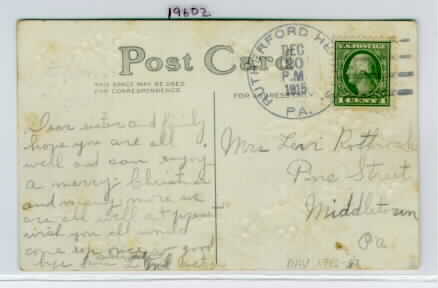 19602
Post Card
THIS SPACE MAY BE USED
FOR CORRESPONDENCE.
FOR ADDRESS
RUTHERFORD HE
DEC
20
P.M
1915
PA.
U.S. POSTAGE
1 CENT 1
Dear sister and family
hope you are all
well and can enjoy
a merry Christmas
and many more we
are all well at present
wish you all would
come up once so good
bye from
Mrs Levi Rothrock
Pine Street
Middletown
Pa